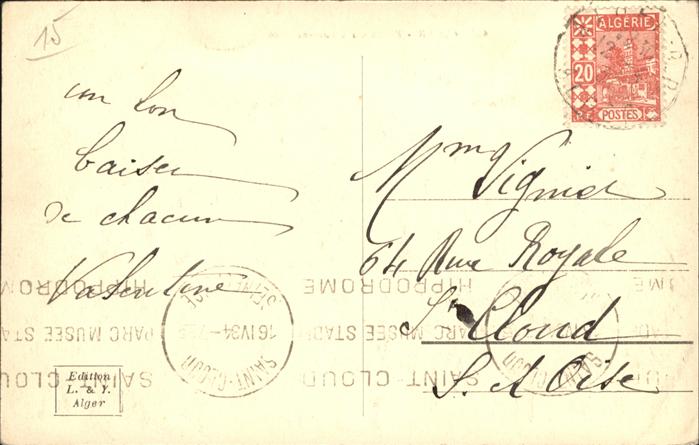 15
ALGÉRIE
20
RF POSTES
un bon
baiser
de chacun
Valentine
Mme Vignier
64 Rue Royale
St Cloud
S. et Oise
HIPPODROME
PARC MUSÉE STADE
SAINT-CLOUD
SAINT-CLOUD
16 IV 34
HIPPODROME
PARC MUSÉE
SAINT-CLOUD
Edition
L. & Y.
Alger